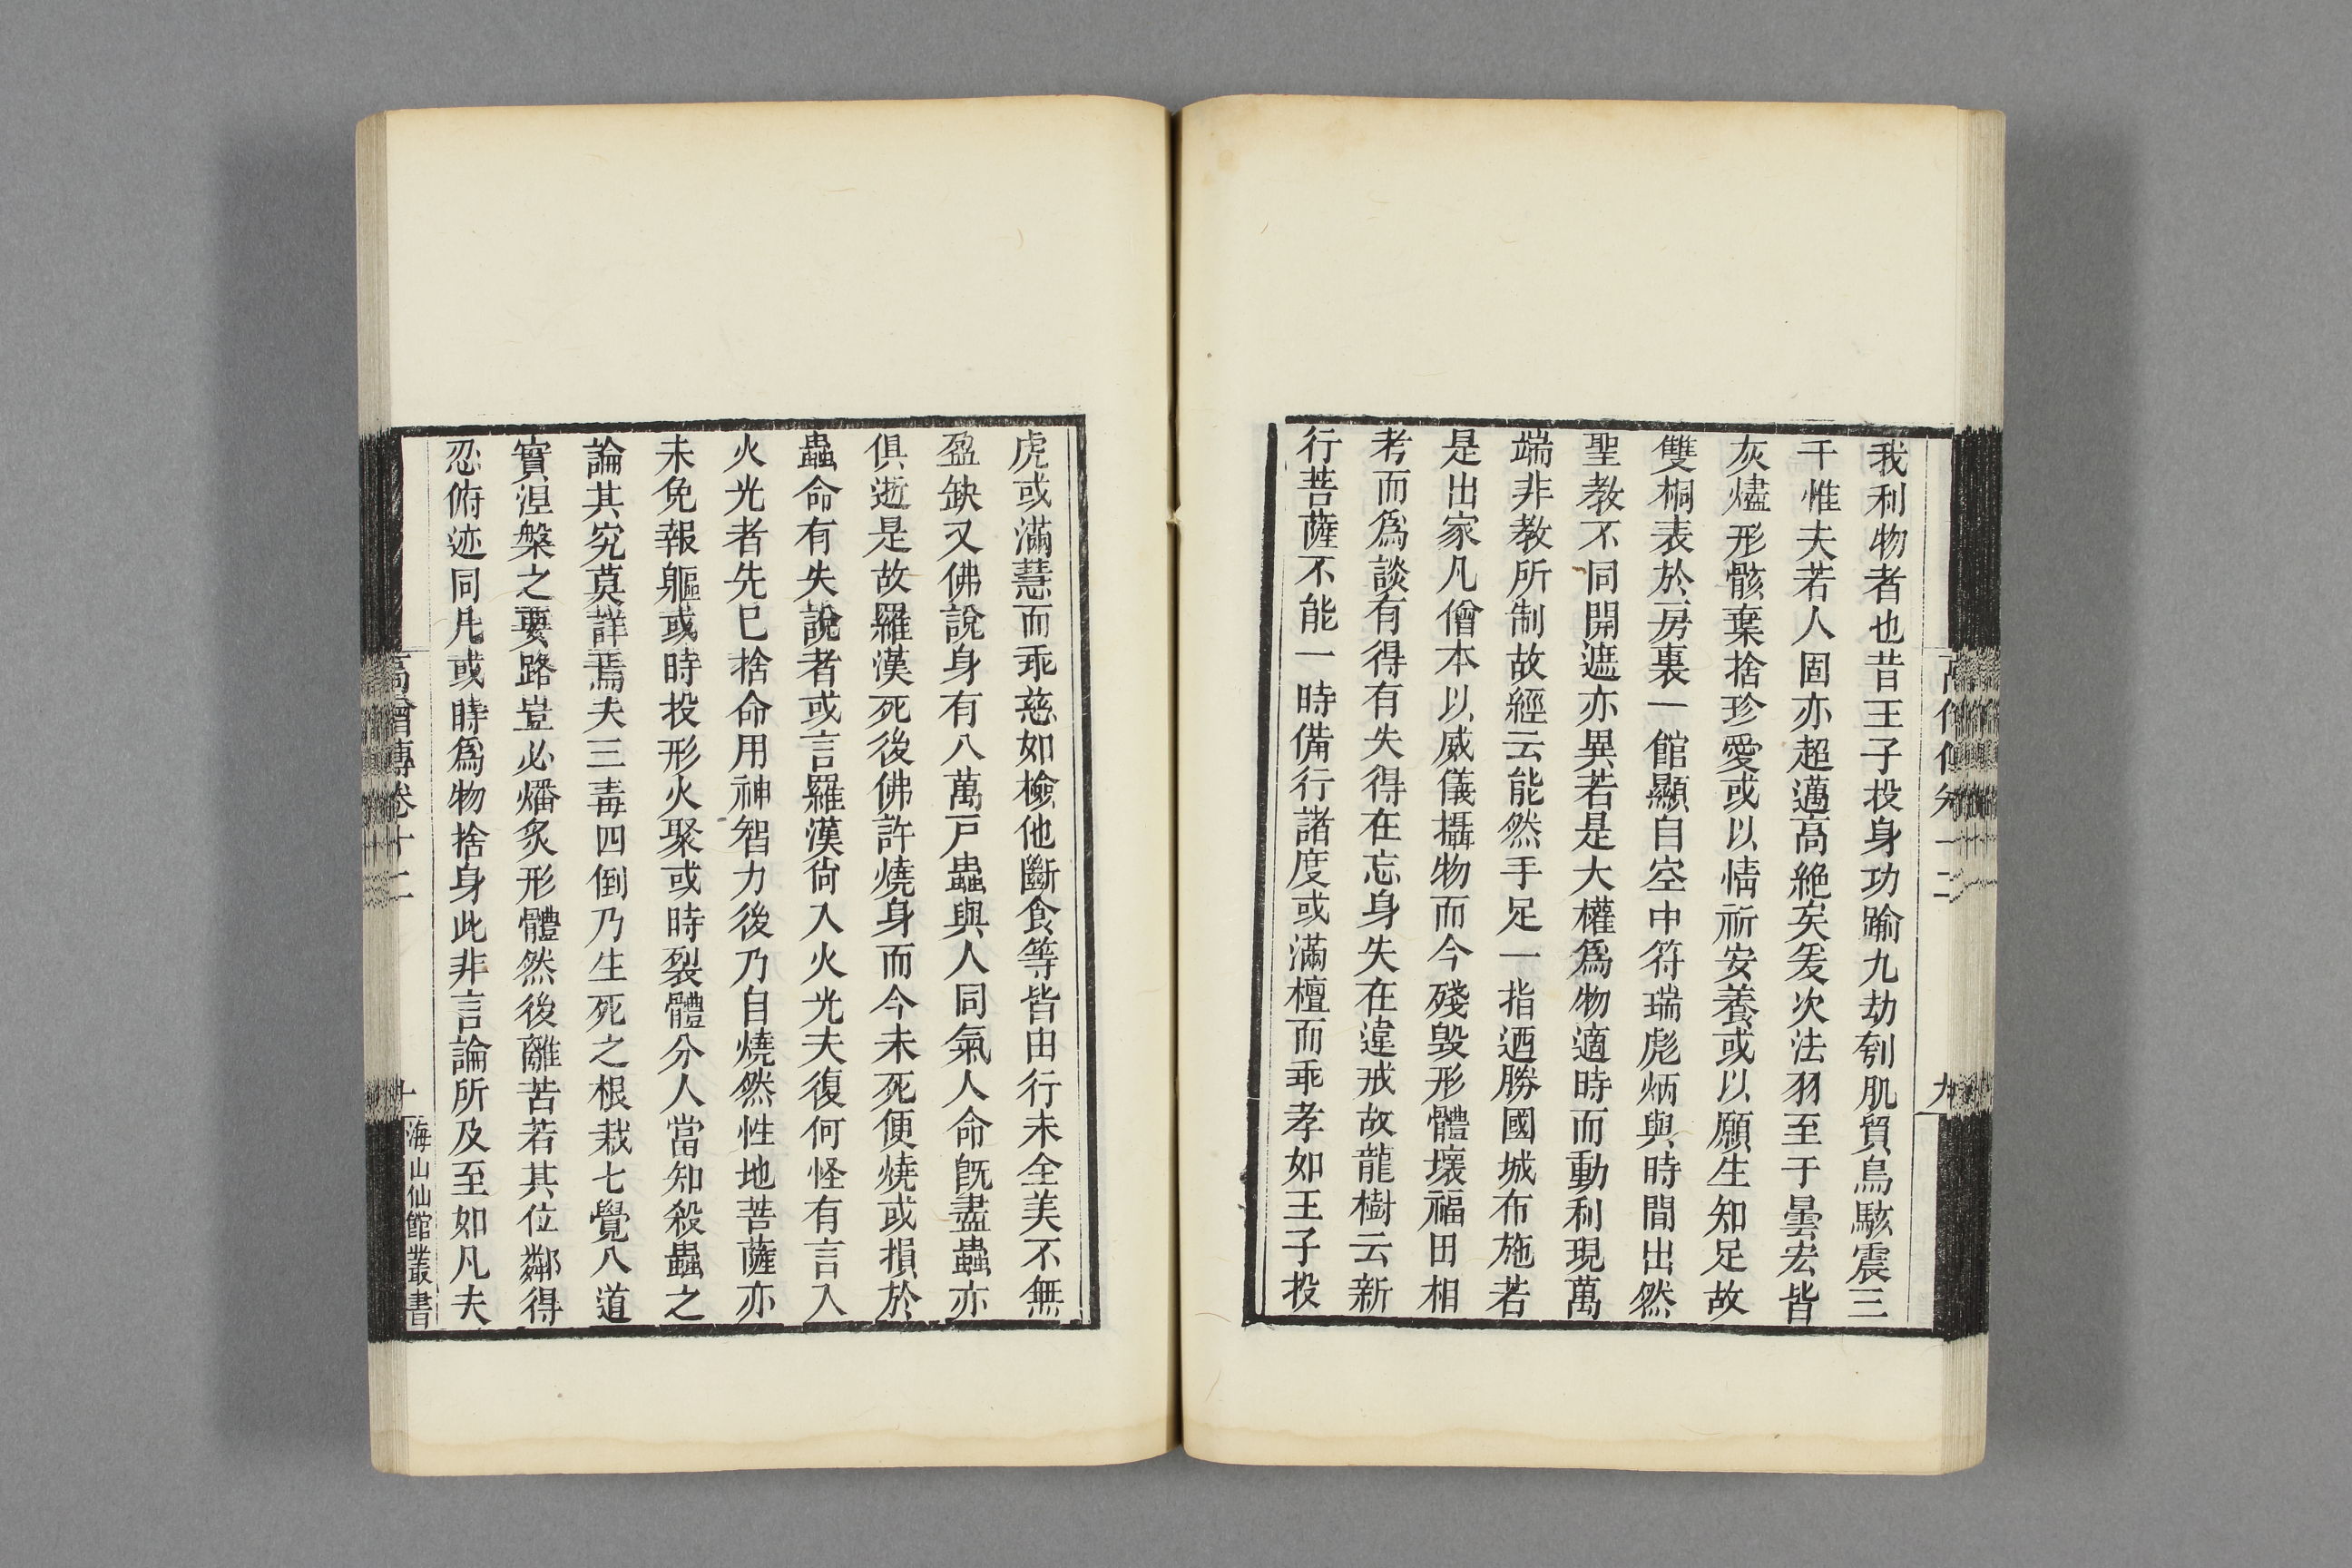 我利物者也昔王子投身功踰九劫刳肌貿鳥駭震三
千惟夫若人固亦超邁高絕矣爰次法羽至于曇宏皆
灰燼形骸棄捨珍愛或以情祈安養或以願生知足故
雙桐表於房裏一館顯自空中符瑞彪炳與時間出然
聖教不同開遮亦異若是大權爲物適時而動利現萬
端非教所制故經云能然手足一指迺勝國城布施若
是出家凡僧本以威儀攝物而今殘毀形體壞福田相
考而爲談有得有失得在忘身失在違戒故龍樹云新
行菩薩不能一時備行諸度或滿檀而乖孝如王子投
虎或滿慧而乖慈如檢他斷食等皆由行未全美不無
盈缺又佛說身有八萬戶蟲與人同氣人命旣盡蟲亦
俱逝是故羅漢死後佛許燒身而今未死便燒或損於
蟲命有失說者或言羅漢尙入火光夫復何怪有言入
火光者先已捨命用神智力後乃自燒然性地菩薩亦
未免報軀或時投形火聚或時裂體分人當知殺蟲之
論其究莫詳焉夫三毒四倒乃生死之根栽七覺八道
實涅槃之要路豈必燔炙形體然後離苦若其位鄰得
忍俯迹同凡或時爲物捨身此非言論所及至如凡夫
高僧傳卷十二
十
海山仙館叢書